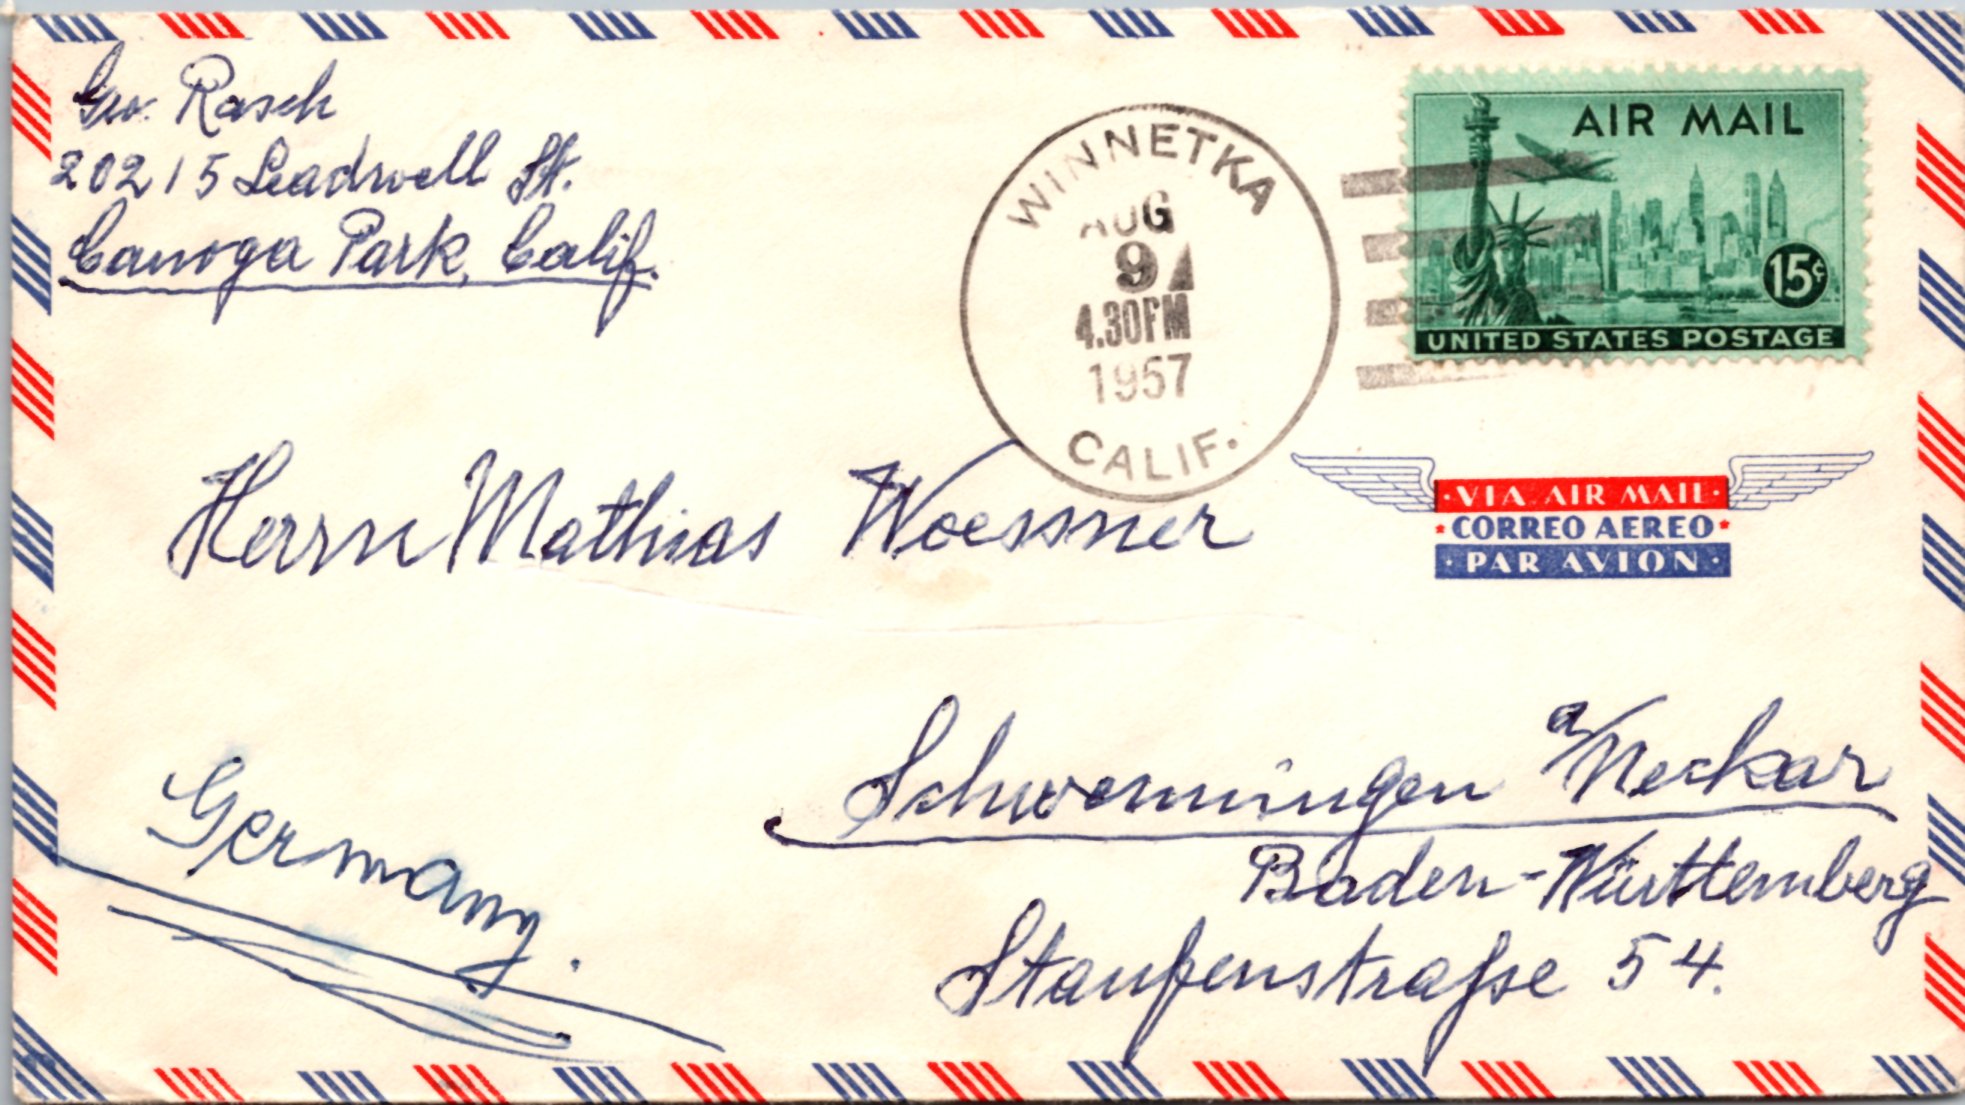 Geo. Rasch
20215 Leadwell St.
Canoga Park, Calif.
WINNETKA
AUG
9
4.30PM
1957
CALIF.
AIR MAIL
15¢
UNITED STATES POSTAGE
·VIA AIR MAIL·
CORREO AEREO
·PAR AVION·
Herrn Mathias Woessner
Schwenningen a/Neckar
Baden-Württemberg
Staufenstraße 54.
Germany.